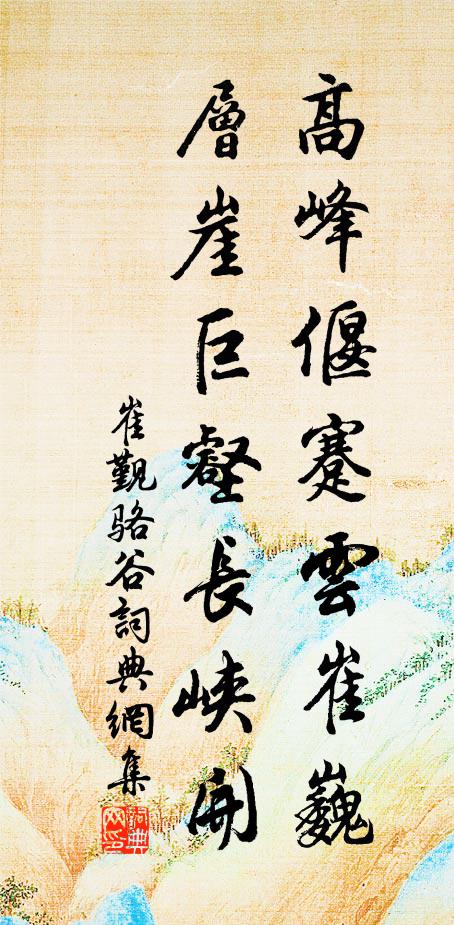 高峰偃蹇雲崔巍
層崖巨壑長峽開
崔覲骆谷詞典網集
詞典